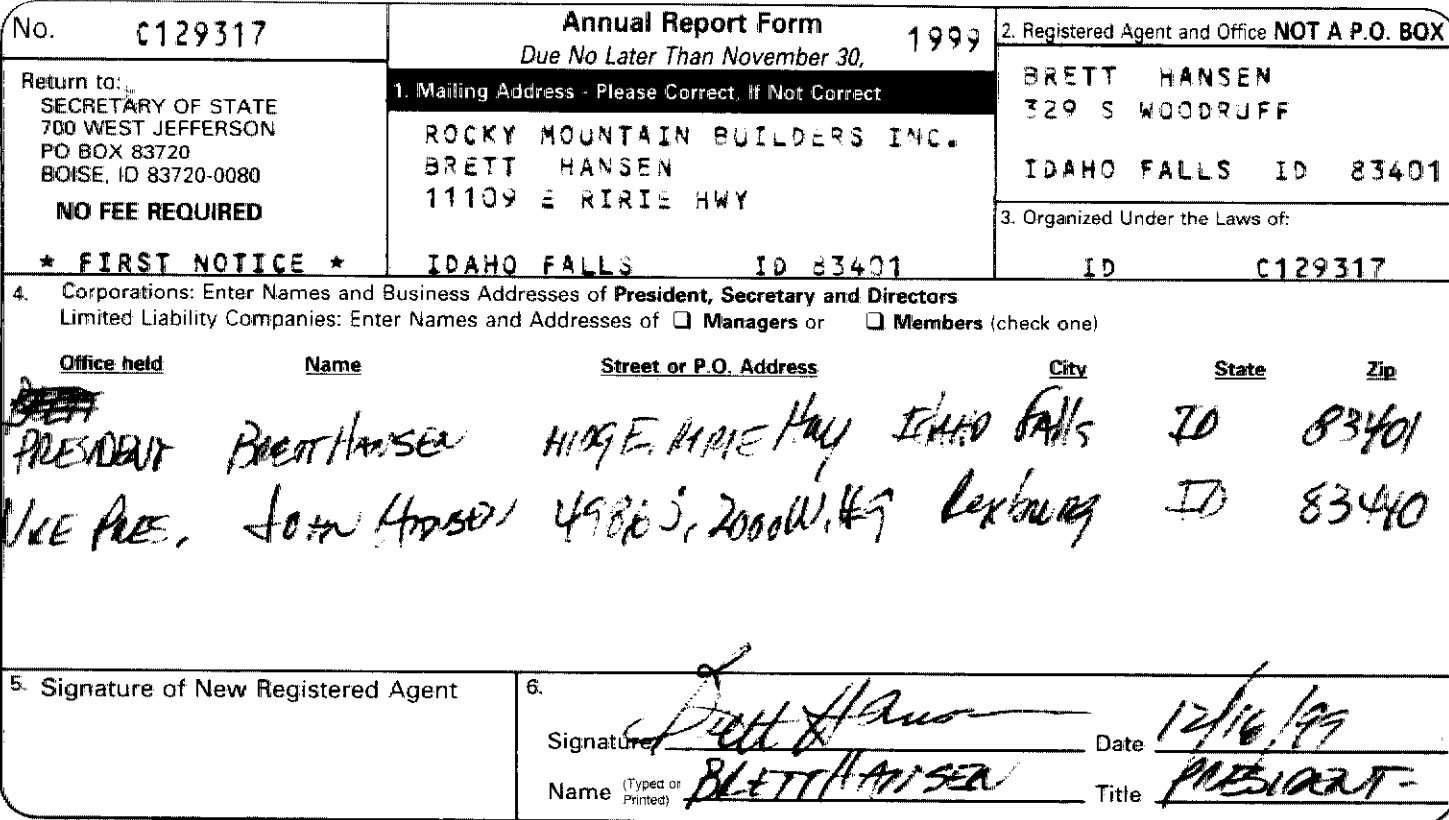 No. C129317
Annual Report Form
Due No Later Than November 30, 1999
Return to:
SECRETARY OF STATE
700 WEST JEFFERSON
PO BOX 83720
BOISE, ID 83720-0080
NO FEE REQUIRED
* FIRST NOTICE *
1. Mailing Address - Please Correct, If Not Correct
ROCKY MOUNTAIN BUILDERS INC.
BRETT HANSEN
11109 E RIRIE HWY
IDAHO FALLS ID 83401
2. Registered Agent and Office NOT A P.O. BOX
BRETT HANSEN
329 S WOODRUFF
IDAHO FALLS ID 83401
3. Organized Under the Laws of:
ID C129317
4. Corporations: Enter Names and Business Addresses of President, Secretary and Directors
Limited Liability Companies: Enter Names and Addresses of ❑ Managers or ❑ Members (check one)
Office held Name Street or P.O. Address City State Zip
PRESIDENT BRETT HANSEN E. RIRIE Hwy IDAHO FAlls ID 83401
VICE PRES. JOHN 2000 W. Rexburg ID 83440
5. Signature of New Registered Agent
6.
Signature Brett Hansen Date 12/16/99
Name (Typed or Printed) BRETT HANSEN Title PRESIDENT